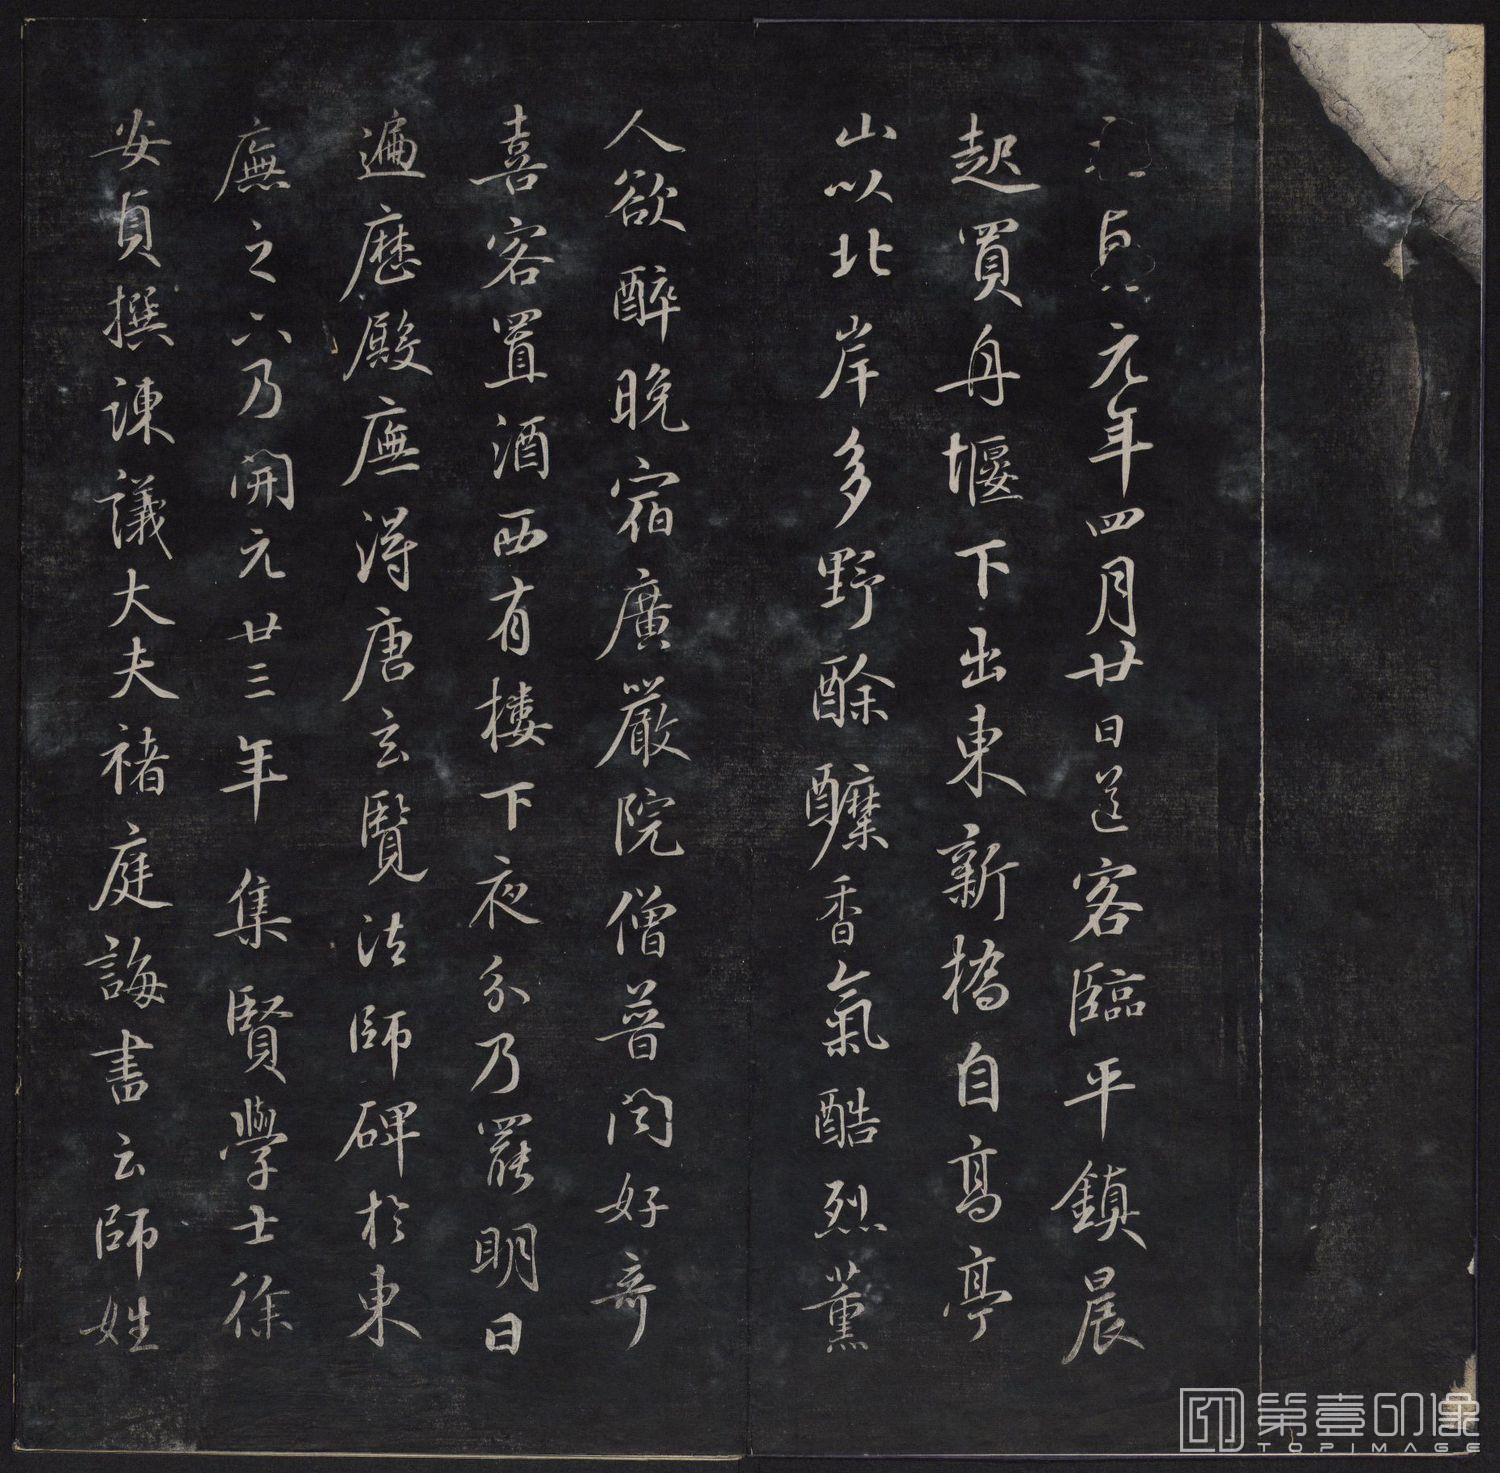 元年四月廿日送客臨平鎮晨
起買舟堰下出東新橋自高亭
山以北岸多野酴醿香氣酷烈薰
人欲醉晚宿廣嚴院僧普聞好奇
喜客置酒西有樓下夜分乃罷明日
遍歷殿廡得唐玄覽法師碑於東
廡之下乃開元廿三年集賢學士徐
安貞撰諫議大夫褚庭誨書云師姓
第壹印像
TOPIMAGE